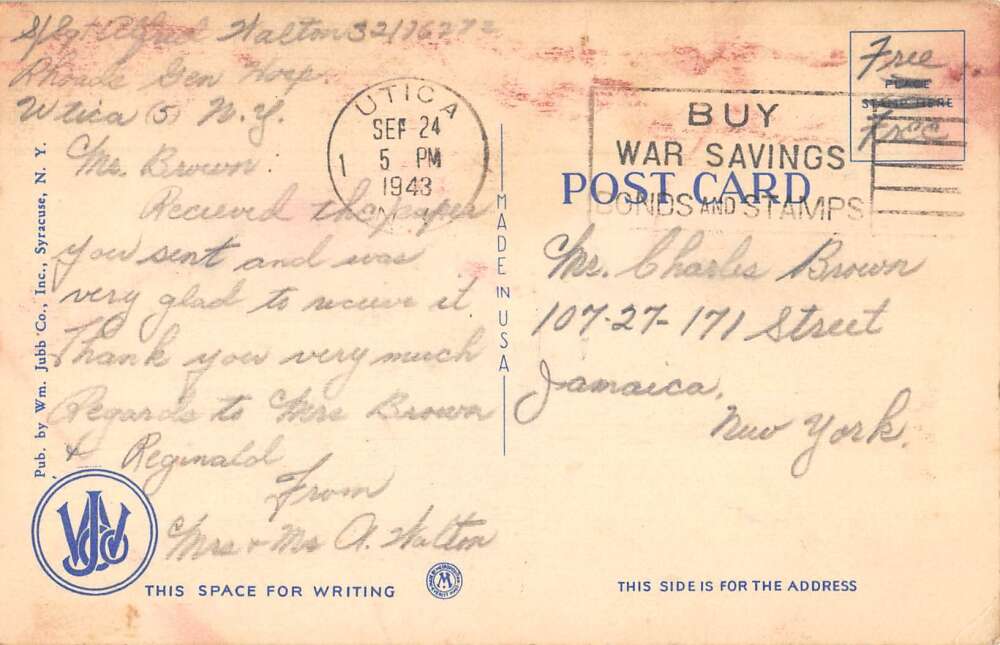 S/Sgt Alfred Walton 32176272
Rhoads Gen Hosp
Utica (5) N.Y.
Mr. Brown
Recieved the paper
you sent and was
very glad to recieve it
Thank you very much
Regards to Mrs Brown
& Reginald
From
Mrs & Mr A. Walton
UTICA
SEP 24
5 PM
1943
1
N.Y.
BUY
WAR SAVINGS
BONDS AND STAMPS
Free
PLACE
STAMP HERE
Free
POST CARD
Mr. Charles Brown
107-27-171 Street
Jamaica,
New York.
MADE IN USA
Pub. by Wm. Jubb Co., Inc., Syracuse, N. Y.
WJCo
THIS SPACE FOR WRITING
M
THIS SIDE IS FOR THE ADDRESS